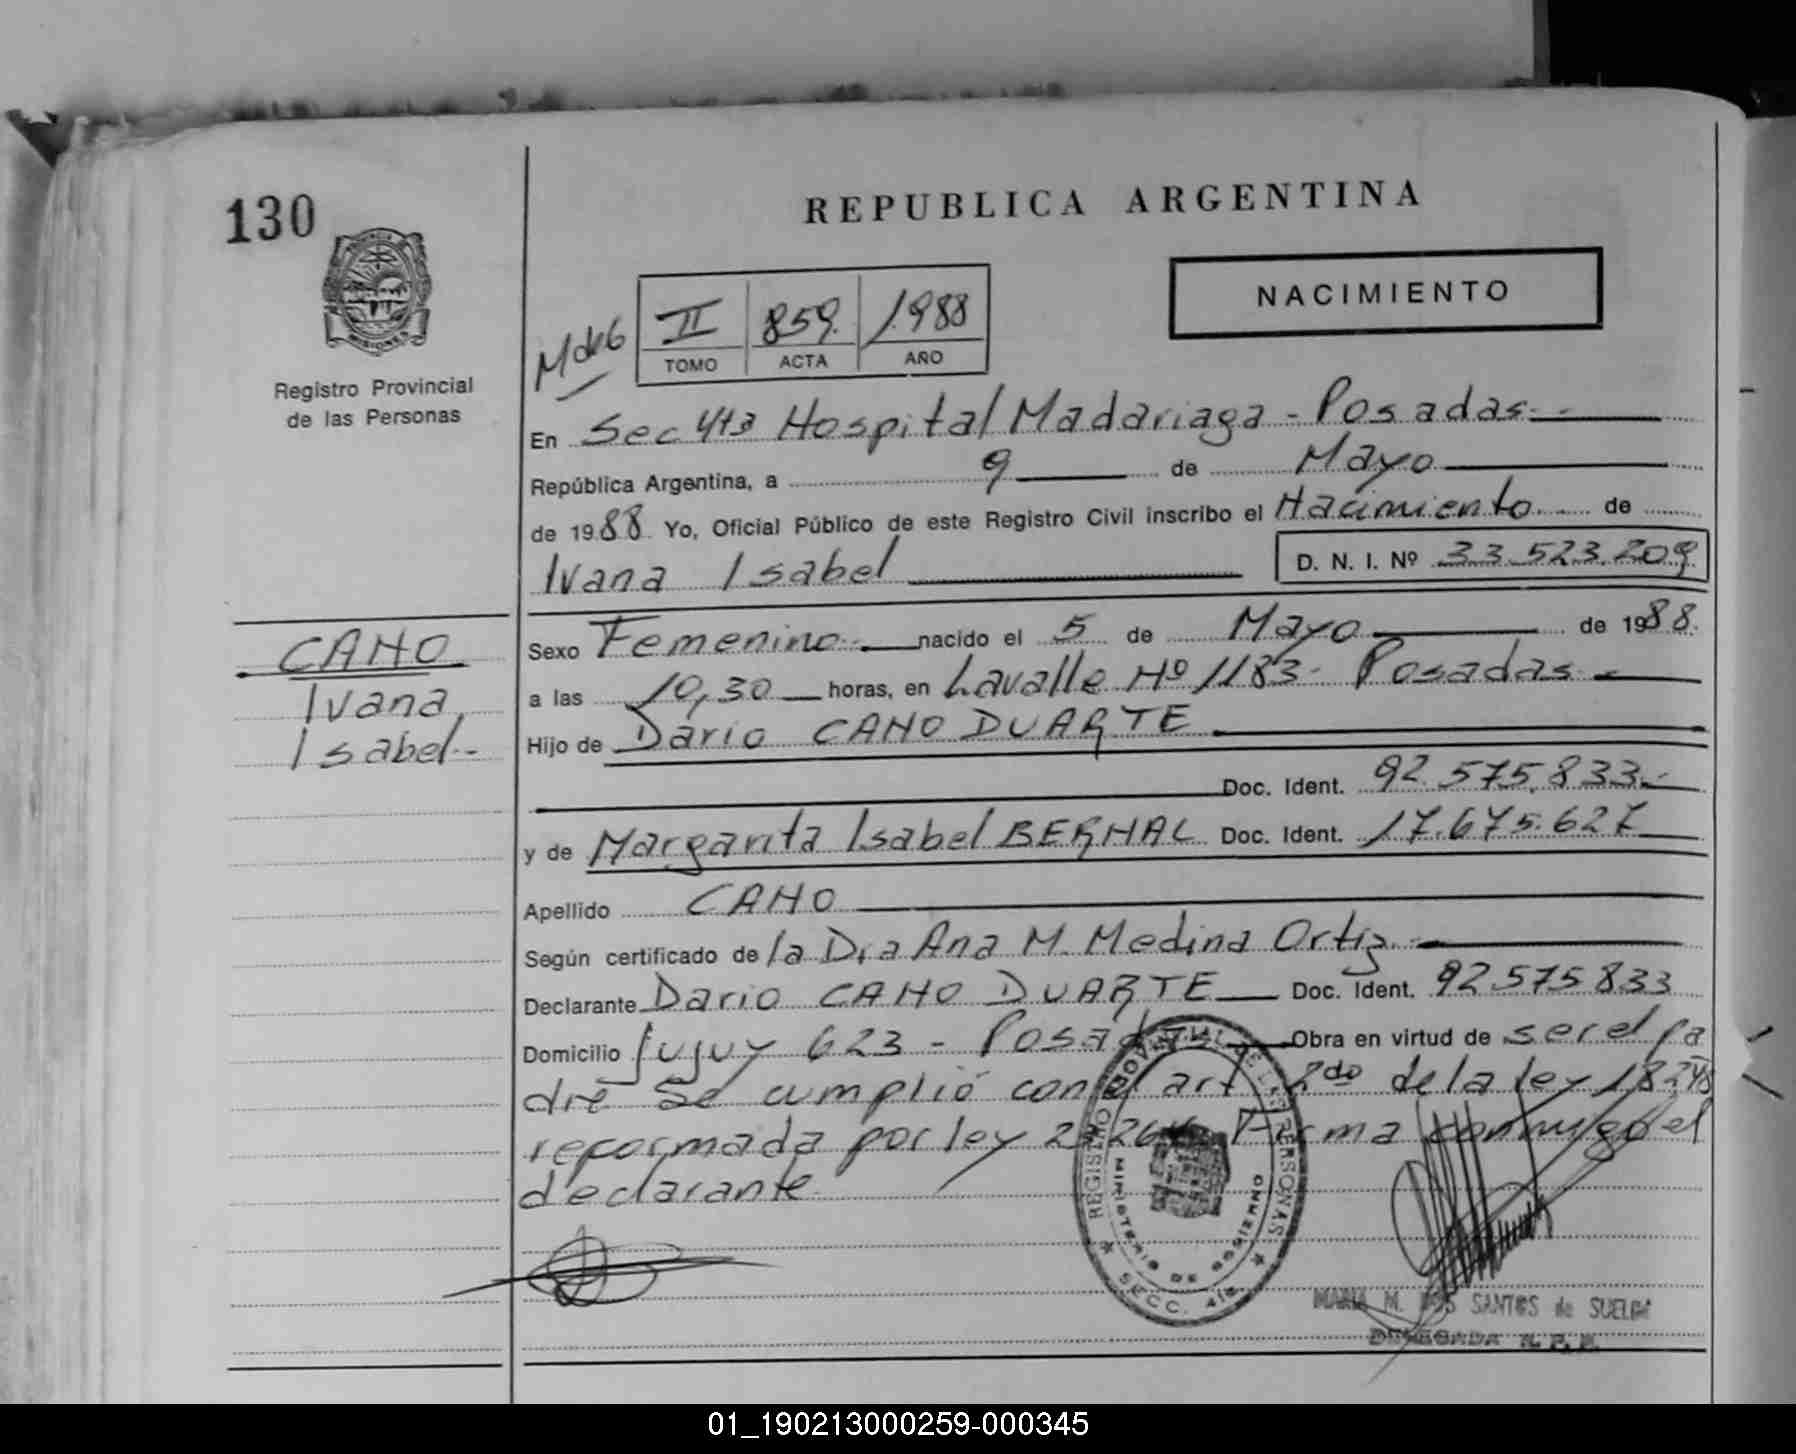 130
REPUBLICA ARGENTINA
PROVINCIA
MISIONES
Registro Provincial
de las Personas
II 859. 1988
TOMO ACTA AÑO
NACIMIENTO
En Sec 4ta Hospital Madariaga - Posadas.-
República Argentina, a 9 de Mayo
de 1988 Yo, Oficial Público de este Registro Civil inscribo el Nacimiento de
Ivana Isabel D. N. I. Nº 33.523.209
CANO
Ivana
Isabel.-
Sexo Femenino.- nacido el 5 de Mayo de 1988.
a las 10,30 horas, en Lavalle Nº 1183- Posadas -
Hijo de Dario CANO DUARTE
Doc. Ident. 92.575.833.-
y de Margarita Isabel BERNAL Doc. Ident. 17.675.627
Apellido CANO
Según certificado de la Dra Ana M. Medina Ortiz.-
Declarante Dario CANO DUARTE Doc. Ident. 92.575.833
Domicilio Jujuy 623 - Posadas Obra en virtud de ser el pa
dre Se cumplió con el art 2do de la ley 18.248
reformada por ley Firma conmigo el
declarante.
REGISTRO PROVINCIAL DE LAS PERSONAS
MINISTERIO DE GOBIERNO
SECC. 4ta
MARIA M. DOS SANTOS de SUELDA
DELEGADA R. P. P.
01_190213000259-000345